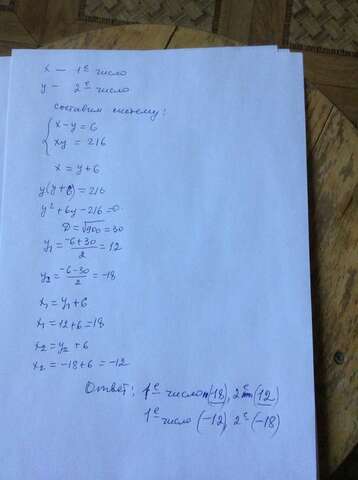 x – 1е число
y – 2е число
составим систему:
{ x-y=6
xy = 216
x = y+6
y(y+6)=216
y²+6y-216=0
D=√900=30
y₁=(-6+30)/2=12
y₂=(-6-30)/2=-18
x₁=y₁+6
x₁=12+6=18
x₂=y₂+6
x₂=-18+6=-12
Ответ: 1е число (18), 2е (12)
1е число (-12), 2е (-18)